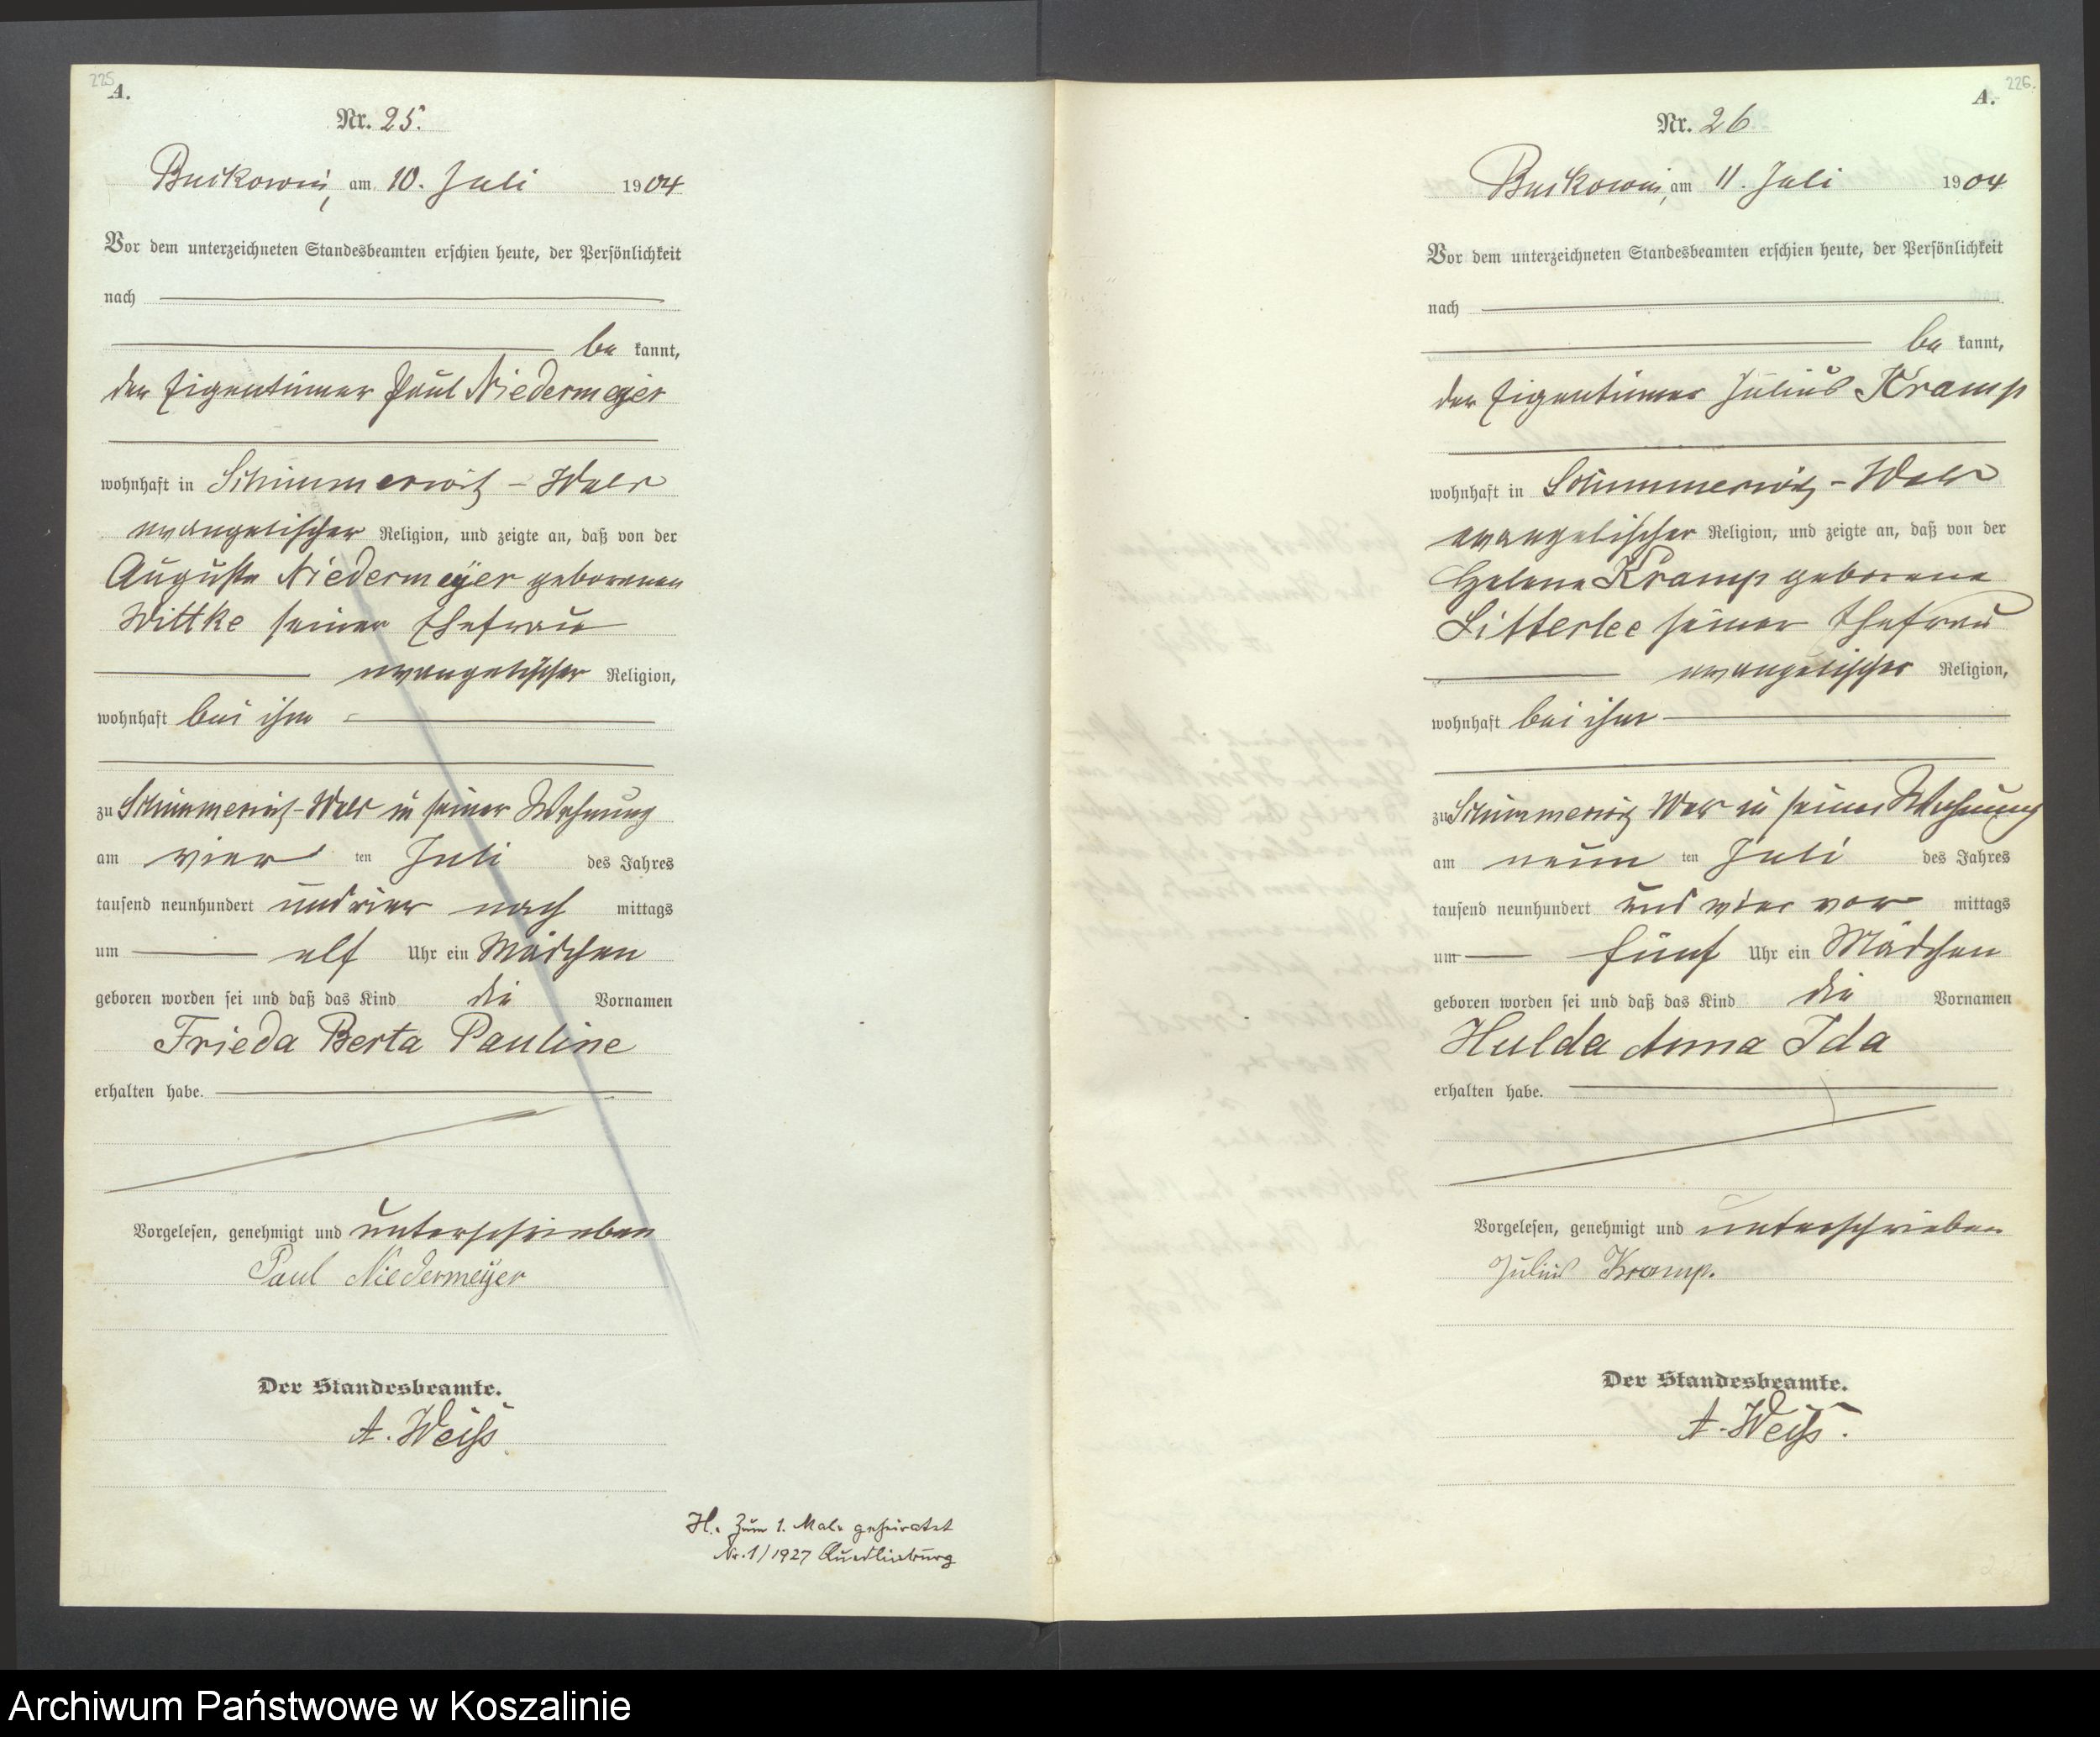 225
A.
Nr. 25.
Buckowin, am 10. Juli 1904
Vor dem unterzeichneten Standesbeamten erschien heute, der Persönlichkeit
nach
be kannt,
der Eigentümer Paul Niedermeyer
wohnhaft in Schimmerwitz - Wald
evangelischer Religion, und zeigte an, daß von der
Auguste Niedermeyer geborenen
Wittke seiner Ehefrau
evangelischer Religion,
wohnhaft bei ihm
zu Schimmerwitz-Wald in seiner Wohnung
am vier ten Juli des Jahres
tausend neunhundert und vier nach mittags
um elf Uhr ein Mädchen
geboren worden sei und daß das Kind die Vornamen
Frieda Berta Pauline
erhalten habe.
Vorgelesen, genehmigt und unterschrieben
Paul Niedermeyer
Der Standesbeamte.
A. Weiß
H. Zum 1. Male geheiratet
Nr. 1/1927 Quedlinburg
226.
A.
Nr. 26
Buckowin, am 11. Juli 1904
Vor dem unterzeichneten Standesbeamten erschien heute, der Persönlichkeit
nach
be kannt,
der Eigentümer Julius Kramp
wohnhaft in Schimmerwitz - Wald
evangelischer Religion, und zeigte an, daß von der
Helene Kramp geborene
seiner Ehefrau
evangelischer Religion,
wohnhaft bei ihm
zu Schimmerwitz Wald in seiner Wohnung
am neun ten Juli des Jahres
tausend neunhundert und vier vor mittags
um fünf Uhr ein Mädchen
geboren worden sei und daß das Kind die Vornamen
Hulda Anna Ida
erhalten habe.
Vorgelesen, genehmigt und unterschrieben
Julius Kramp.
Der Standesbeamte.
A. Weiß.
Archiwum Państwowe w Koszalinie